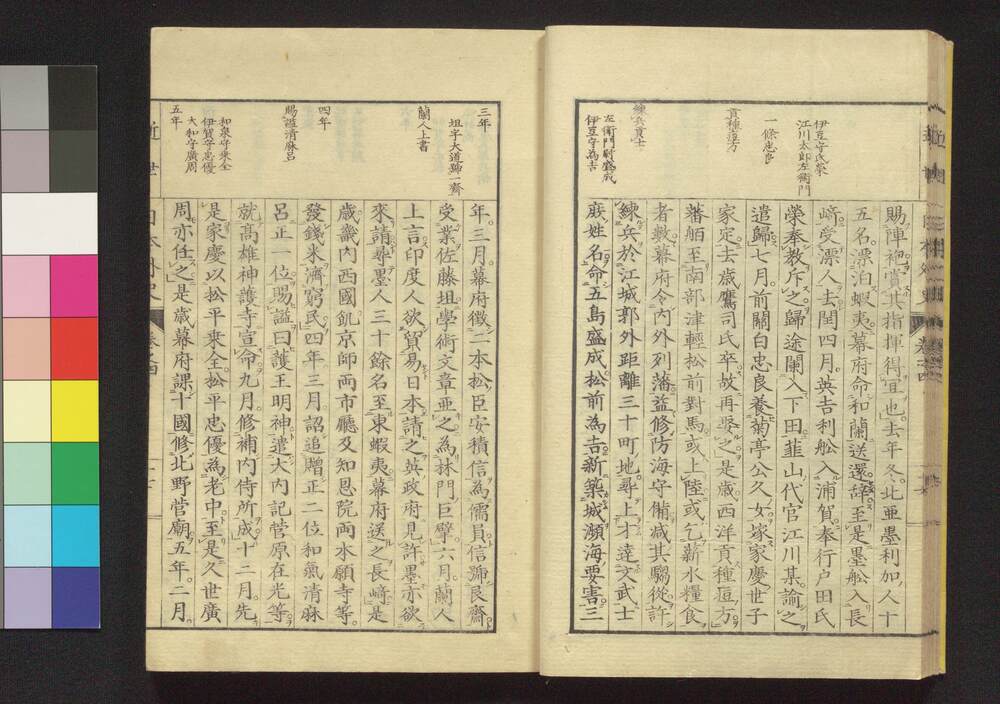 伊豆守氏榮
江川太郎左衛門
一條忠良
貢種痘方
練兵貢士
左衛門尉盛成
伊豆守為吉
賜陣袍賞其指揮得宜也去年冬北亜墨利加人十
五名漂泊蝦夷幕府命和蘭送還辭至是墨舩入長
﨑受漂人去閏四月英吉利舩入浦賀奉行戸田氏
榮奉教斥之歸途闌入下田韮山代官江川某諭之
遣歸七月前關白忠良養菊亭公久女嫁家慶世子
家定去歳鷹司氏卒故再娶之是歳西洋貢種痘方
蕃舶至南部津輕松前對馬或上陸或乞薪水糧食
者數幕府令内外列藩益修防海守備减其騶從許
練兵於江城郭外距離三十町地尋上才達文武士
庻姓名命五島盛成松前為吉新築城瀕海要害三
三年
坦字大道號一齋
蘭人上書
四年
賜謚清麻呂
和泉守乗全
伊賀守忠優
大和守廣周
五年
年三月幕府徴二本松臣安積信為儒員信號艮齋
受業佐藤坦學術文章亜之為林門巨擘六月蘭人
上言印度人欲貿易日本請之英政府見許墨亦欲
來請尋墨人三十餘名至東蝦夷幕府送之長﨑是
歳畿内西國飢京師両市廳及知恩院両本願寺等
發錢米濟窮民四年三月詔追贈正二位和氣清麻
呂正一位賜謚曰護王明神遣大内記菅原在光等
就高雄神護寺宣命九月修補内侍所成十二月先
是家慶以松平乗全松平忠優為老中至是久世廣
周亦任之是歳幕府課十國修北野菅廟五年二月
近世
日本外史